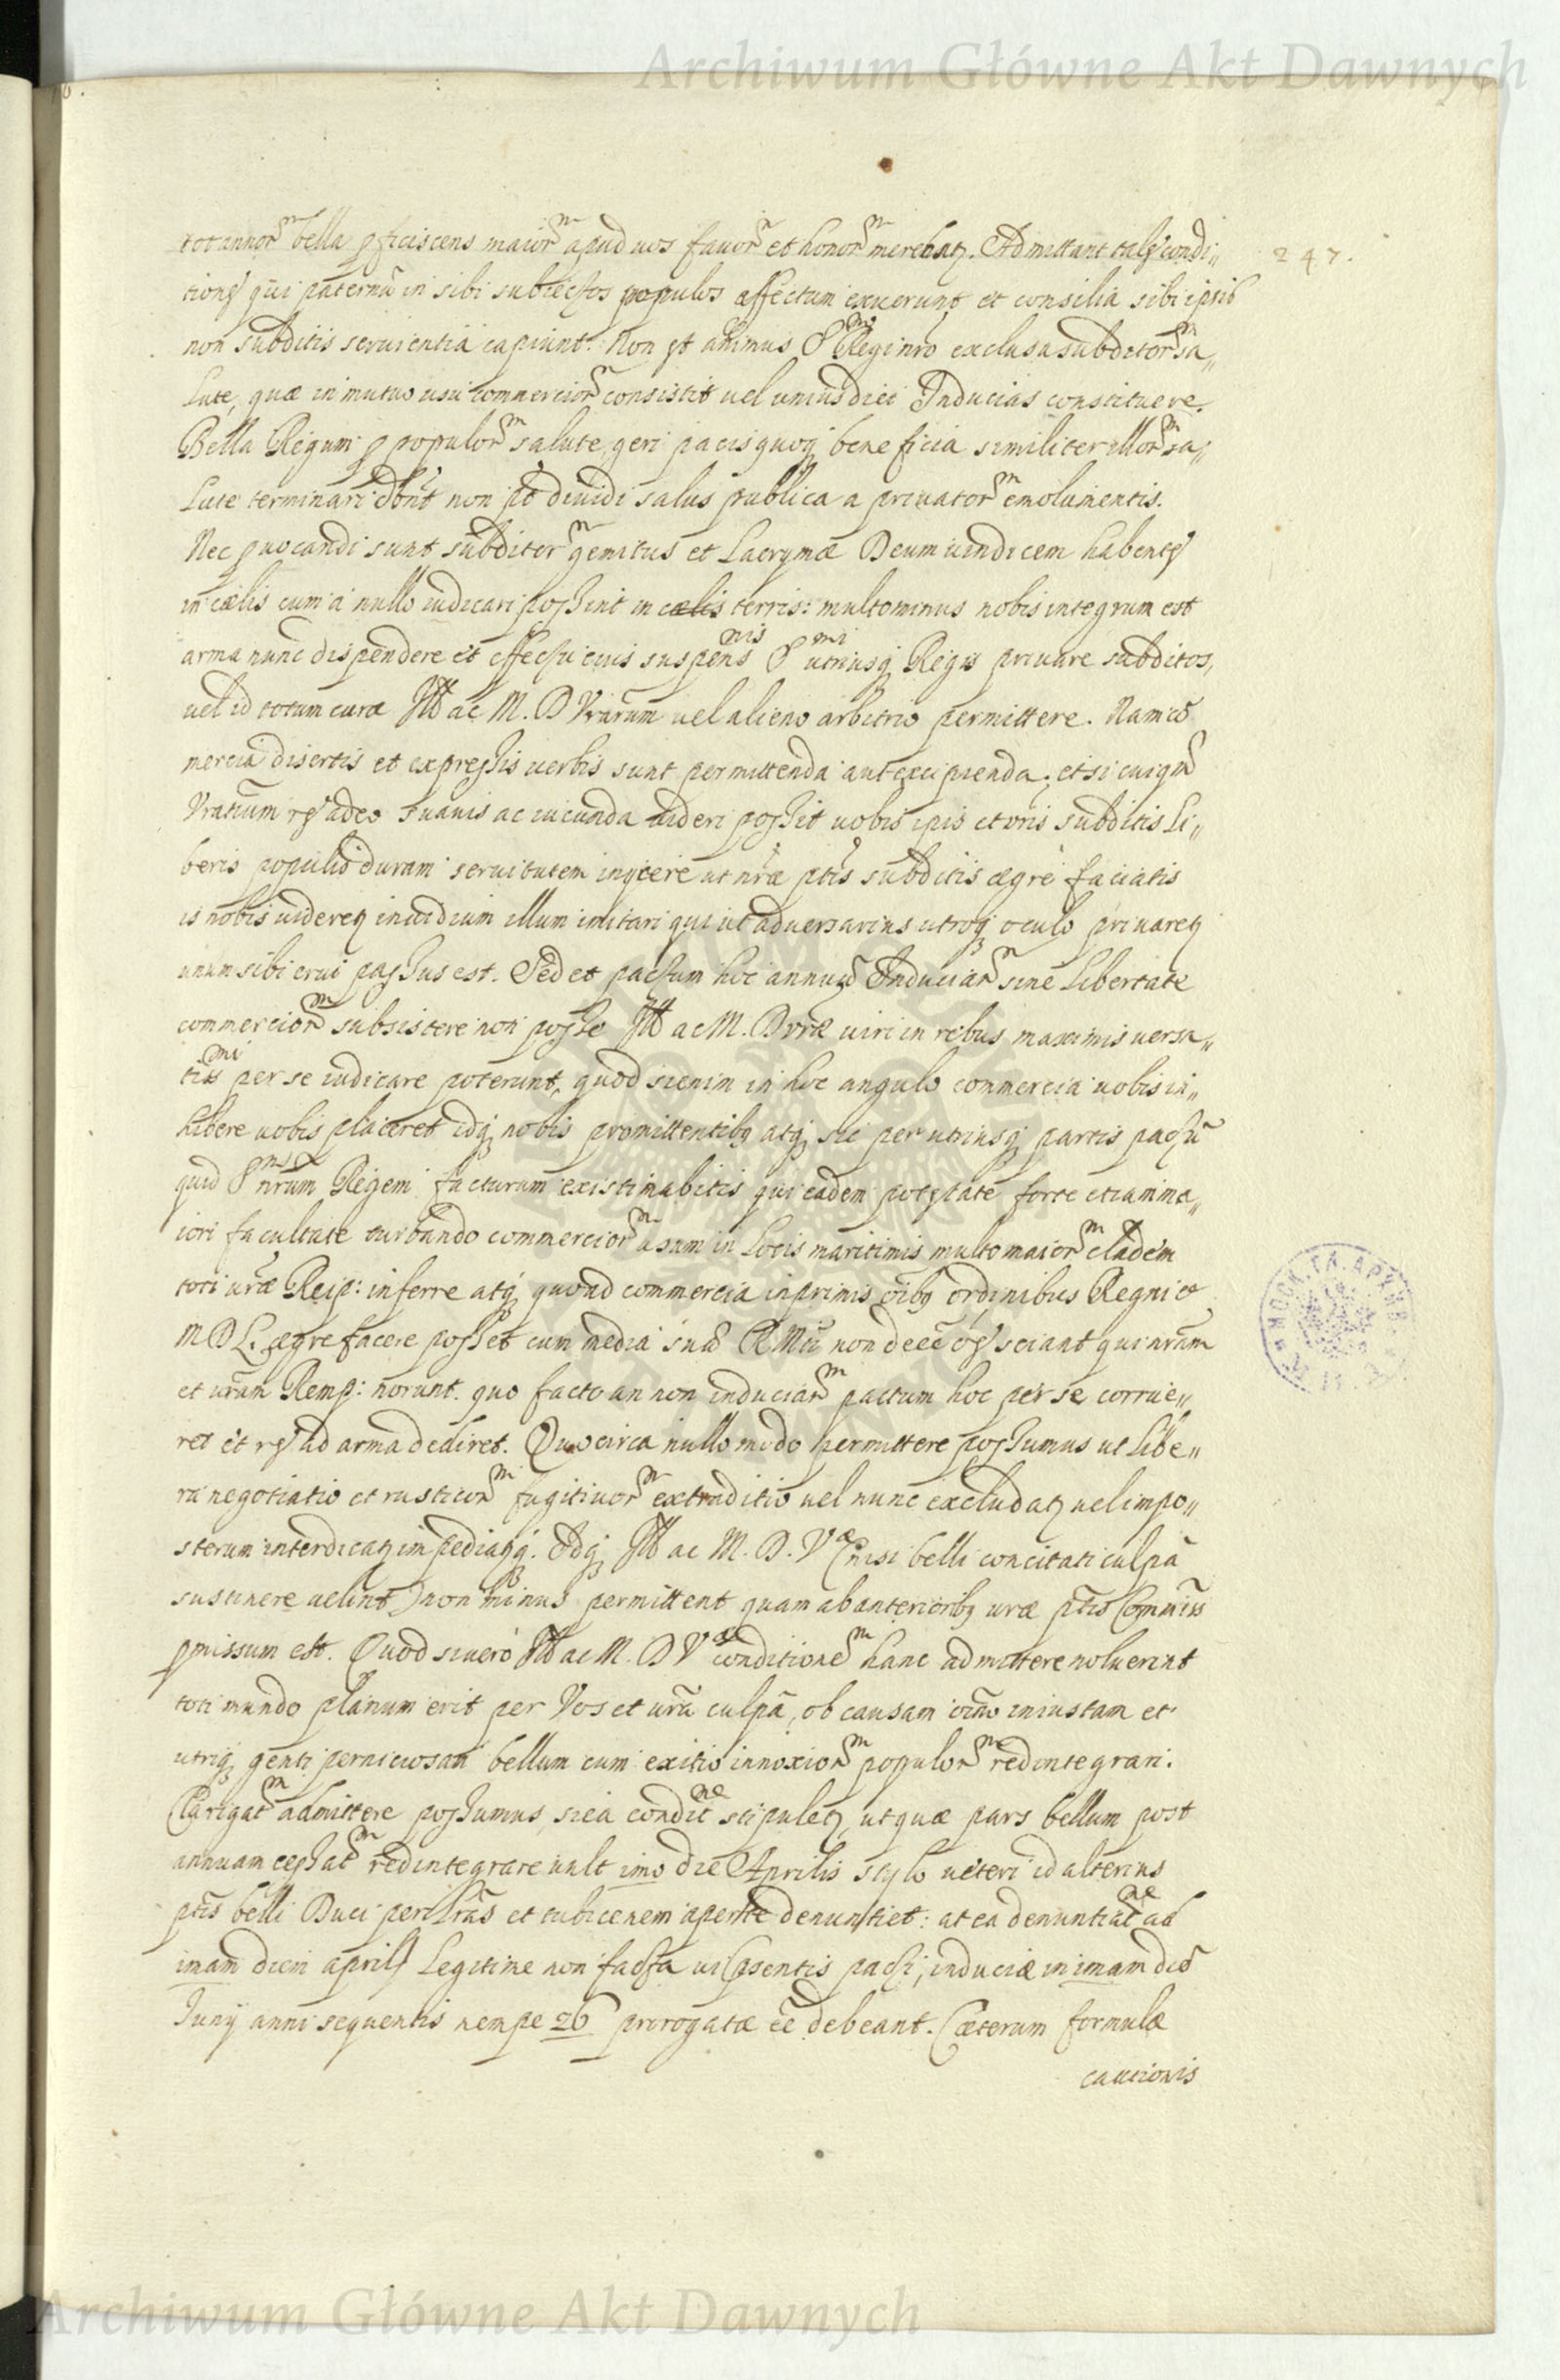 Archiwum Główne Akt Dawnych
247.
tot annorm bella pficiscens maiorm apud vos favorm et honorm merebatq. Admittant tales condi„
tiones qui paternū in sibi subiectos populos affectum exuerunt et consilia sibi ipsis
non subditis servientia capiunt. Non est animus Smo Regi nro exclusa subditorm sa„
lute, quæ in mutuo usu commerciorm consistit vel unius diei Inducias constituere.
Bella Regum p populorm salute geri pacis quoq beneficia similiter illorm sa„
lute terminari dbnt non pt dividi salus publica a privatorm emolumentis.
Nec pvocandi sunt subditorm gemitus et Lacrymæ Deum vindicem habentes
in cælis cum a nullo iudicari possint in cælis terris: multominus nobis integrum est
arma nunc dispendere et effectu eius suspensnis Smi utriusq Regis privare subditos,
vel id totum curæ Ill ac M. D Vrarum vel alieno arbitrio permittere. Nam cō
mercia disertis et expressis verbis sunt permittenda aut excipienda, et si cuiqm
Vratium res adeo suavis ac iucunda videri possit vobis ipis et vris subditis Li„
beris populis duram servitutem inycere ut nræ ptis subditis ægre faciatis
is nobis videretq invidium illum imitari qui ut adversarius utroq oculo privaretq
unum sibi erui passus est. Sed et pactum hoc annuū Induciarm sine Libertate
commerciorm subsistere non posse Ill ac M. D vræ viri in rebus maximis versa„
tissmi per se iudicare poterunt, quod si enim in hoc angulo commercia vobis in„
hibere vobis placeret idq nobis promittentibq atq sic per utriusq partis pactū
quid Smum nrum Regem facturum existimabitis qui eadem potestate forte etiam ma„
iori facultate turbando commerciorm usum in Locis maritimis multo maiorm cladem
toti vræ Reip: inferre atq quoad commercia inprimis oibq ordinibus Regni et
M D L. ægre facere posset cum media suæ R Mti non deeē oes sciant qui nram
et vram Remp: norunt. quo facto an non induciarm pactum hoc per se corrue„
ret et res ad arma rediret. Quocirca nullo modo permittere possumus ut libe„
ra negotiatio et rusticorm fugitivorm extraditio vel nunc excludatq vel impo„
sterum interdicatq impediatqq. Idq Ill ac M. D. Væ (nisi belli concitati culpā
sustinere velint) non minus permittent quam ab anterioribq vræ ptis Commiss
pmissum est. Quod si vero Ill ac M. D Væ conditionem hanc admittere noluerint
toti mundo planum erit per Vos et vrā culpā, ob causam oīno iniustam et
utriq genti perniciosam bellum cum exitio innoxiorm populorm redintegrari.
Clarigatm admittere possumus, si ea conditne stipuletq, ut quæ pars bellum post
annuam cessatm redintegrare vult imo die Aprilis stylo veteri id alterius
ptis belli Duci per Lrās et tubicenem aperte denuntiet: at ea denuntiatne ad
imam diem aprilis Legitime non facta vi psentis pacti, induciæ in imam diē
Juny anni sequentis nempe 26 prorogatæ eē debeant. Cæterum formulæ
cautionis
Archiwum Główne Akt Dawnych